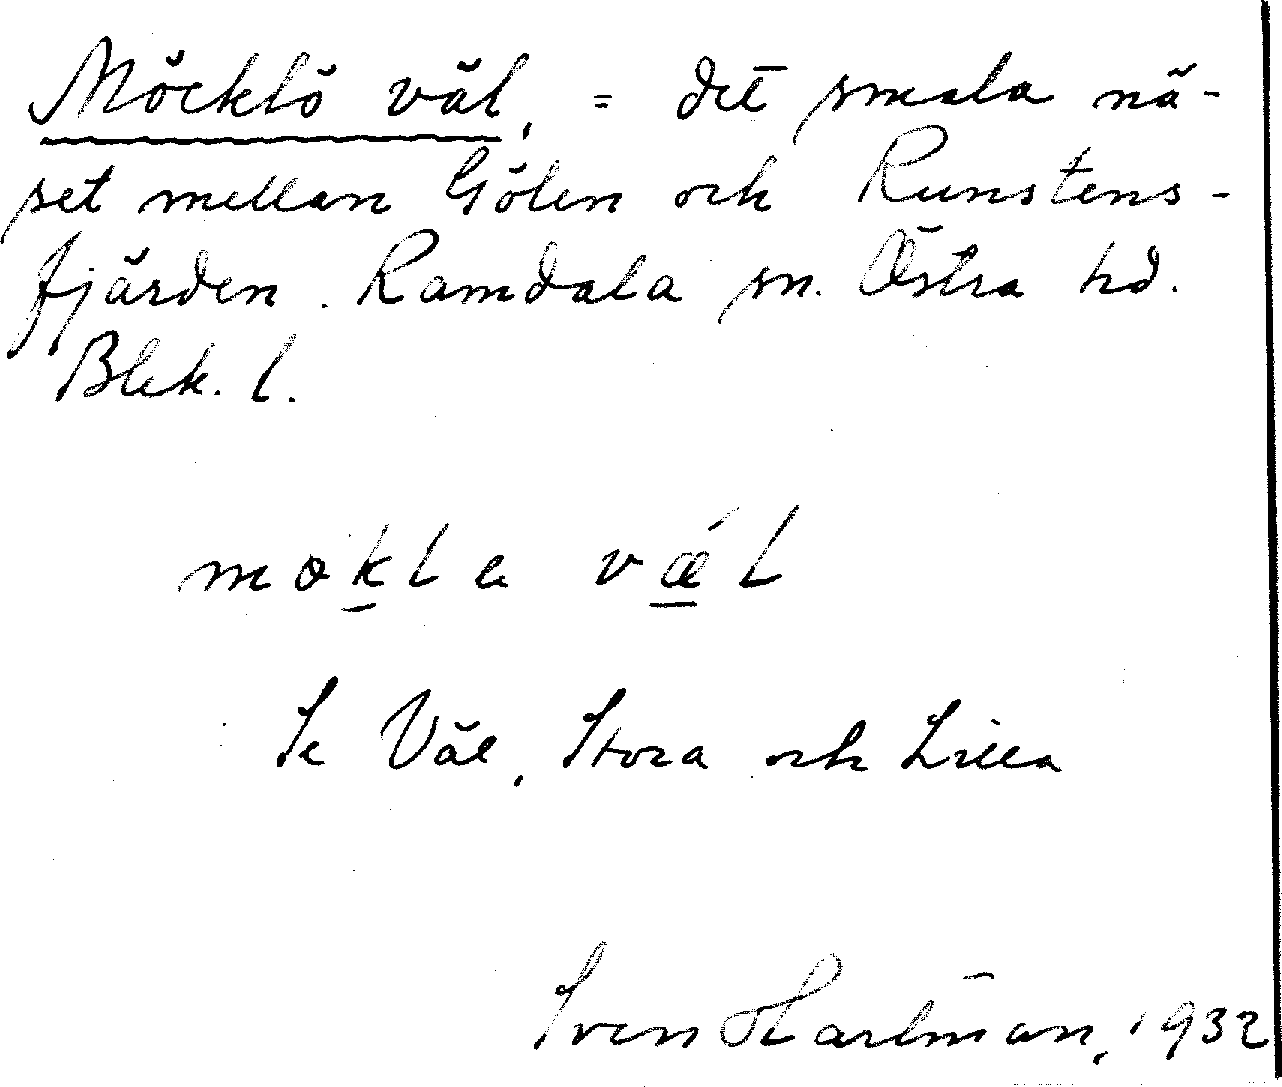 Möcklö väl, = det smala nä-
set mellan Gölen och Runstens-
fjärden. Ramdala sn. Östra hd.
Blek. l.
møkle vǽl
Se Väl, Stora och Lilla
Sven Hartman, 1932